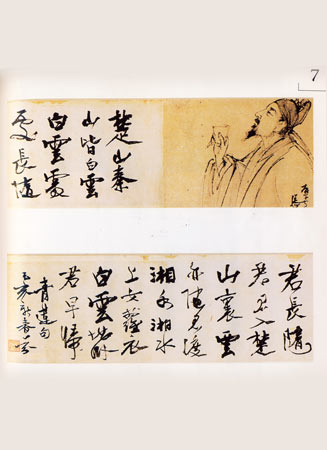 7
楚山秦
山皆白雲
白雲處
處長隨
君長隨
君君入楚
山裏雲
亦隨君渡
湘水湘水
上女蘿衣
白雲堪卧
君早歸
青蓮句
乙亥新春